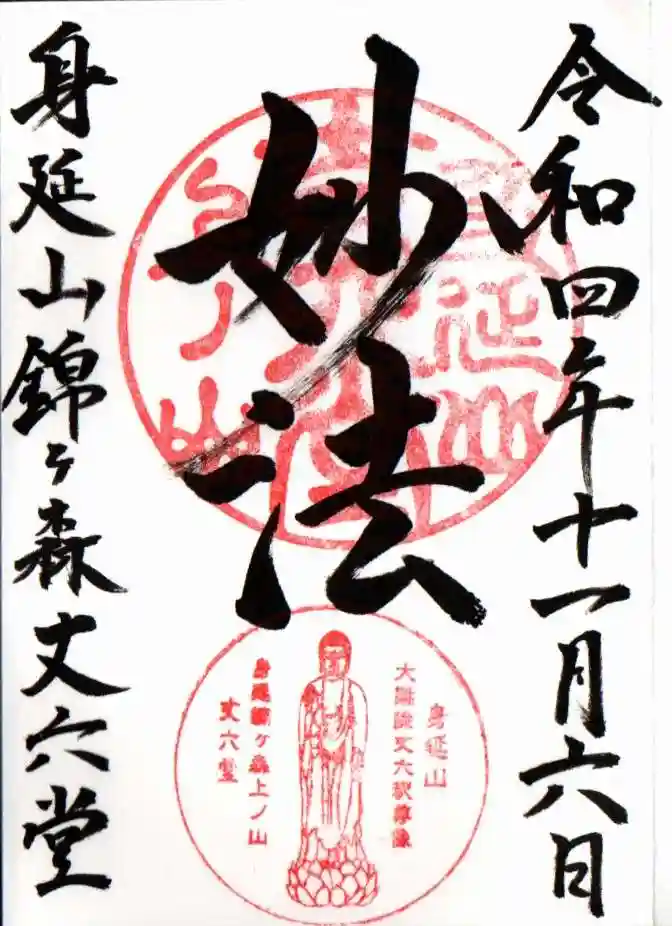 令和四年十一月六日
妙法
身延山錦ヶ森丈六堂
身延山
丈六釈尊像
身延錦ヶ森上ノ山
丈六堂